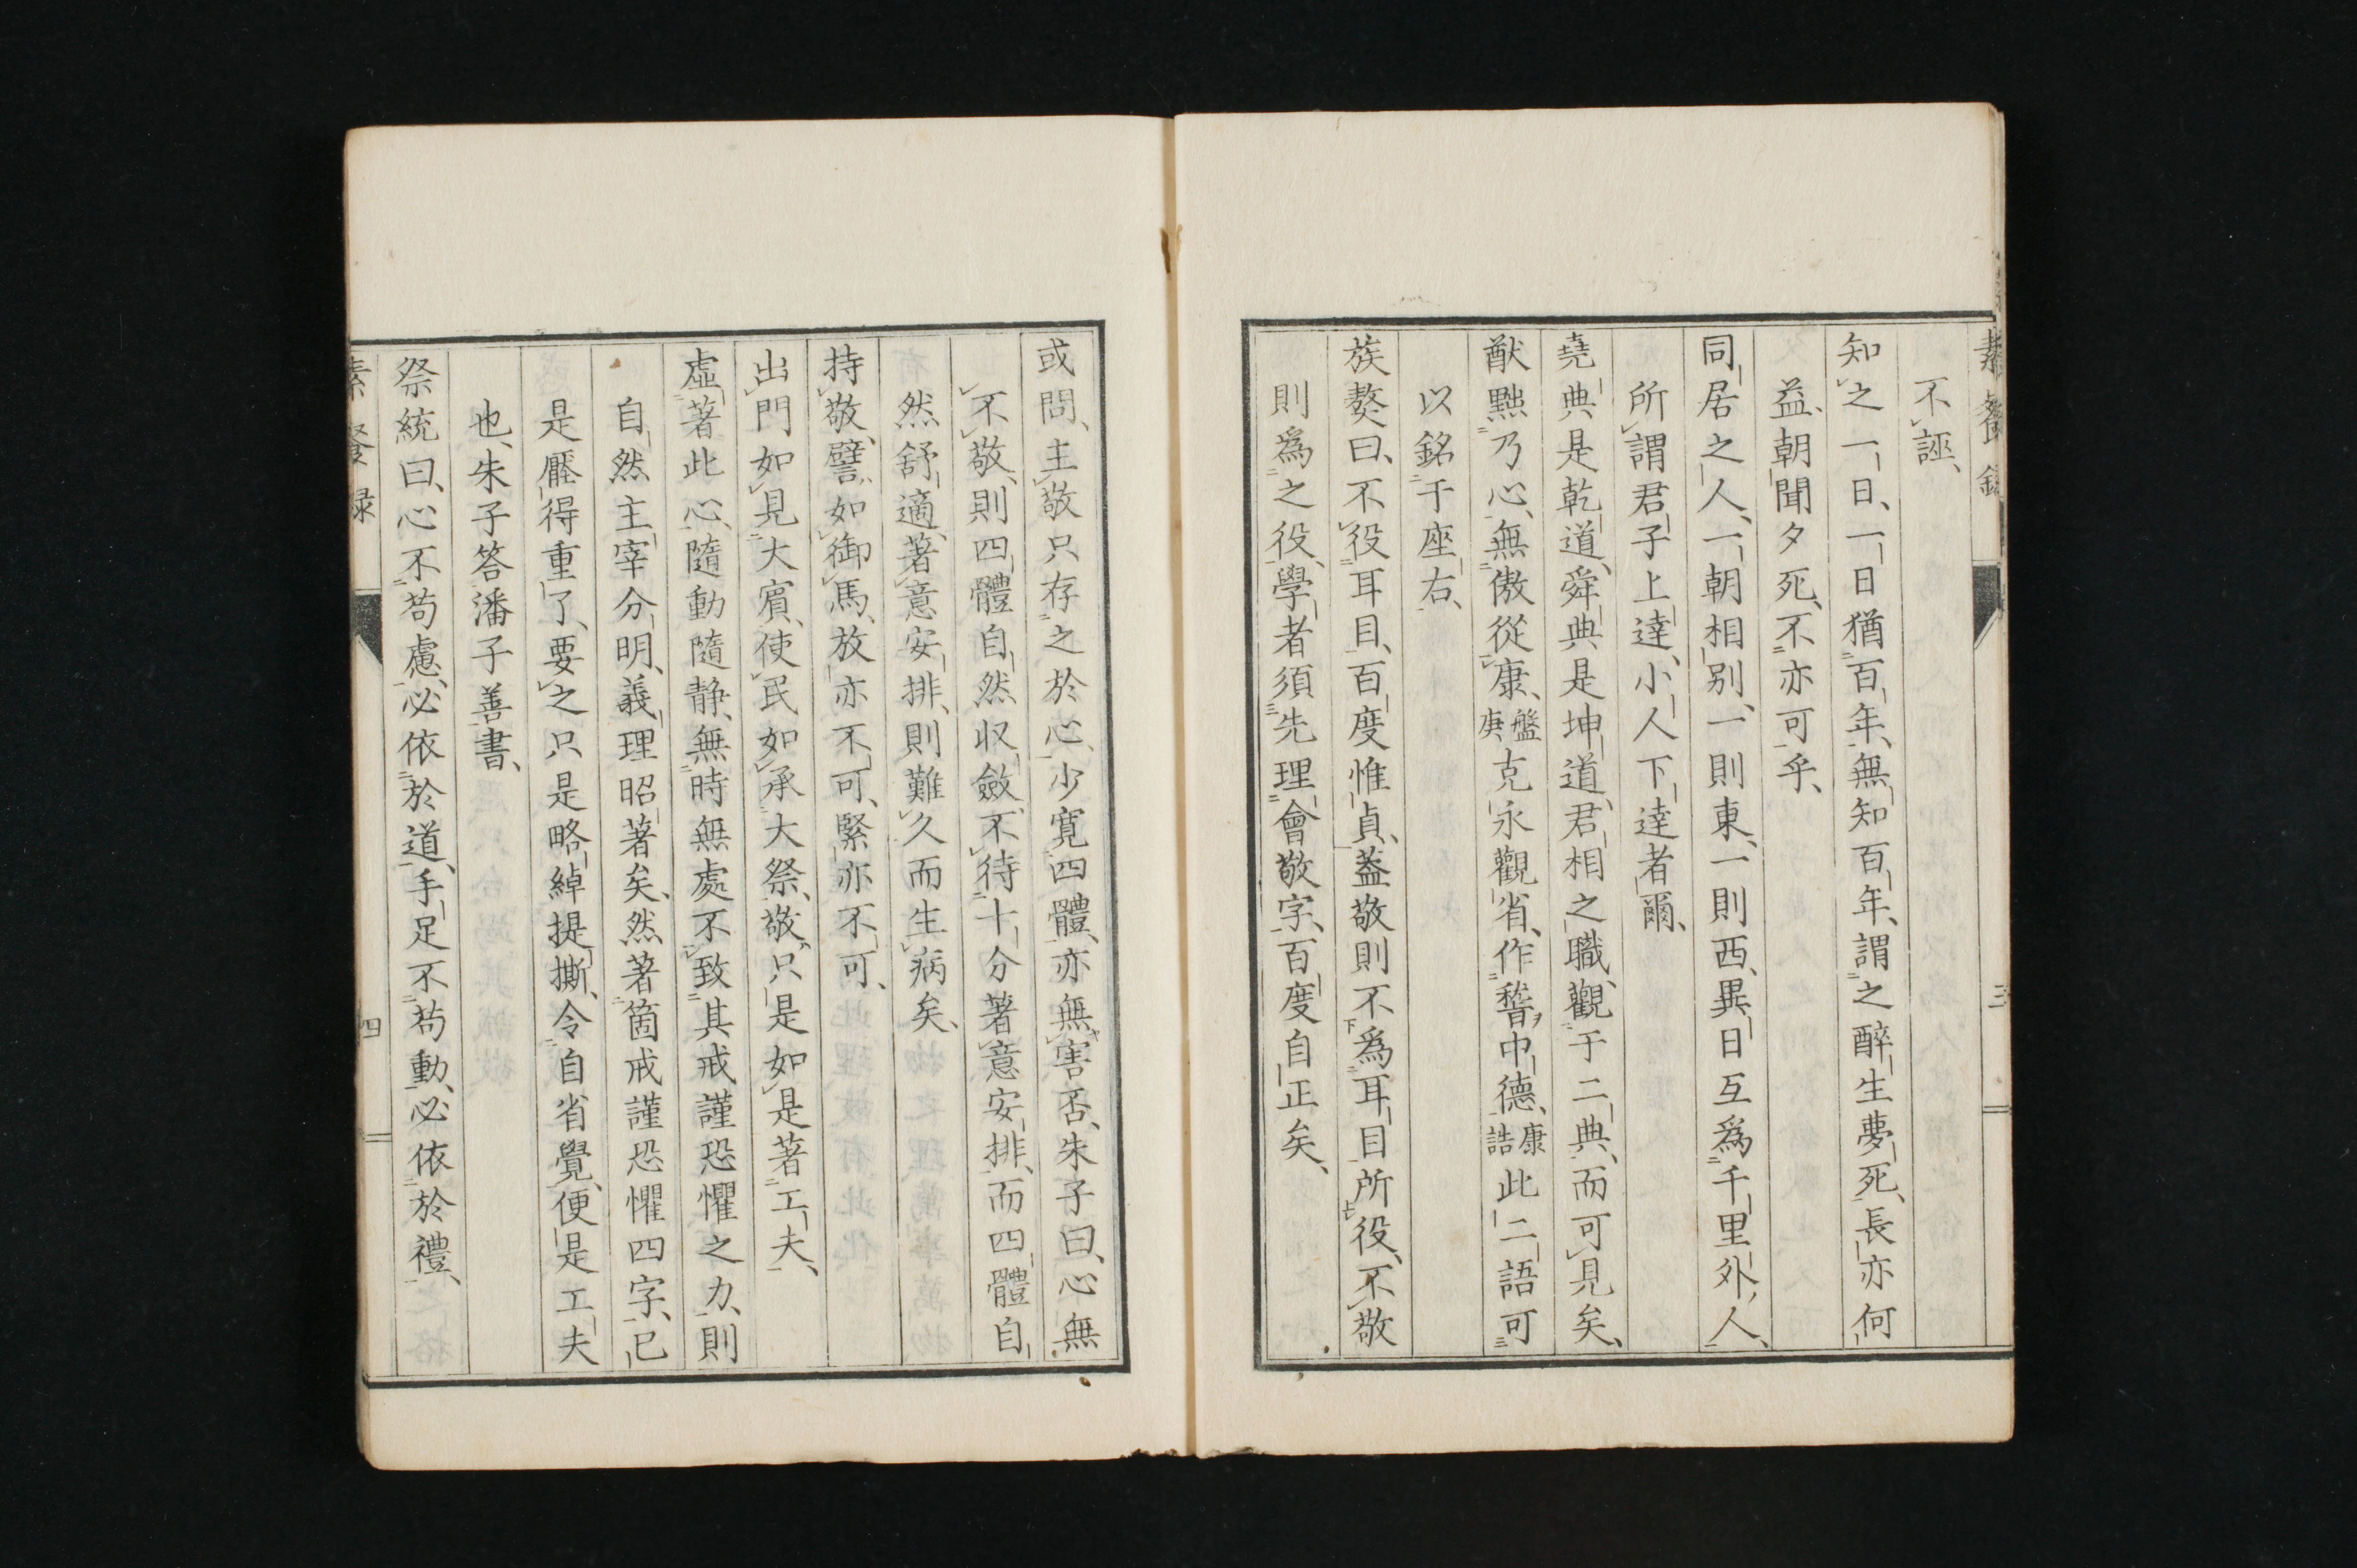 素餐錄 三
不誣、
知之一日、一日猶百年、無知百年、謂之醉生夢死、長亦何
益、朝聞夕死、不亦可乎、
同居之人、一朝相別、一則東、一則西、異日互爲千里外人、
所謂君子上達、小人下達者爾、
堯典是乾道、舜典是坤道、君相之職、觀于二典、而可見矣、
猷黜乃心、無傲從康、盤庚克永觀省、作稽中德、康誥此二語可
以銘于座右、
旅獒曰、不役耳目、百度惟貞、葢敬則不爲耳目所役、不敬
則爲之役、學者須先理會敬字、百度自正矣、
或問、主敬只存之於心、少寛四體、亦無害否、朱子曰、心無
不敬、則四體自然収斂、不待十分著意安排、而四體自
然舒適、著意安排、則難久而生病矣、
持敬、譬如御馬、放亦不可、緊亦不可、
出門如見大賓、使民如承大祭、敬只是如是著工夫、
虛著此心、隨動隨静、無時無處不致其戒謹恐懼之力、則
自然主宰分明、義理昭著矣、然著箇戒謹恐懼四字、已
是壓得重了、要之只是略綽提撕、令自省覺、便是工夫
也、朱子答潘子善書、
祭統曰、心不苟慮、必依於道、手足不苟動、必依於禮、
素餐録 四